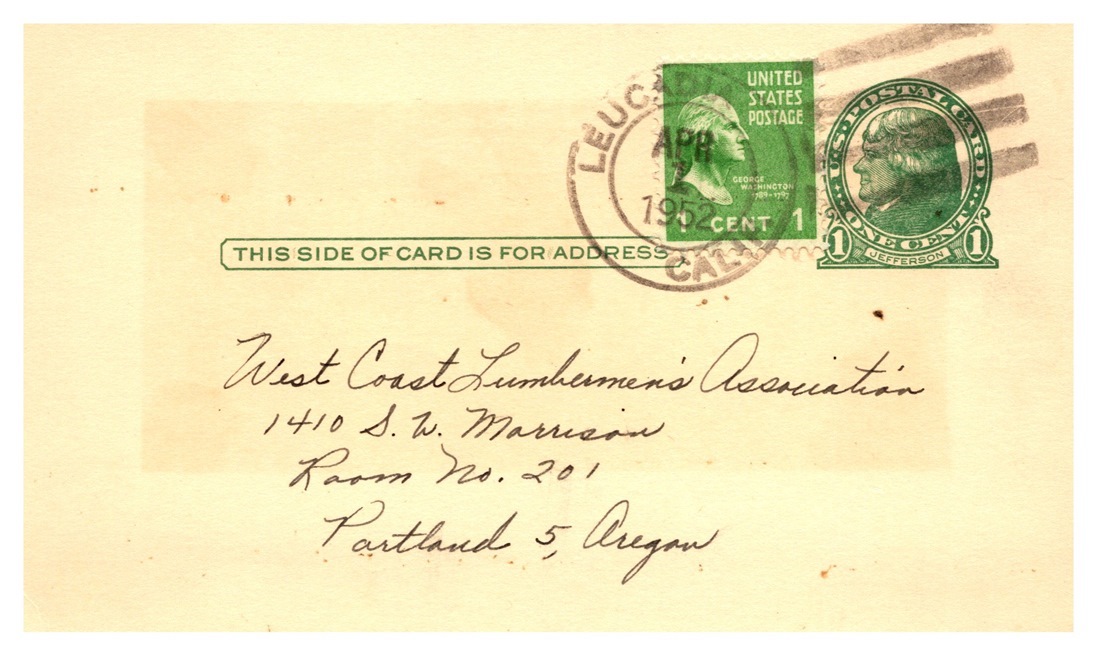 UNITED
STATES
POSTAGE
GEORGE
WASHINGTON
1789-1797
1 CENT 1
U.S. POSTAL CARD
ONE CENT
1 1
JEFFERSON
APR
1952
CALIF
THIS SIDE OF CARD IS FOR ADDRESS
West Coast Lumbermen's Association
1410 S. W. Morrison
Room No. 201
Portland 5, Oregon